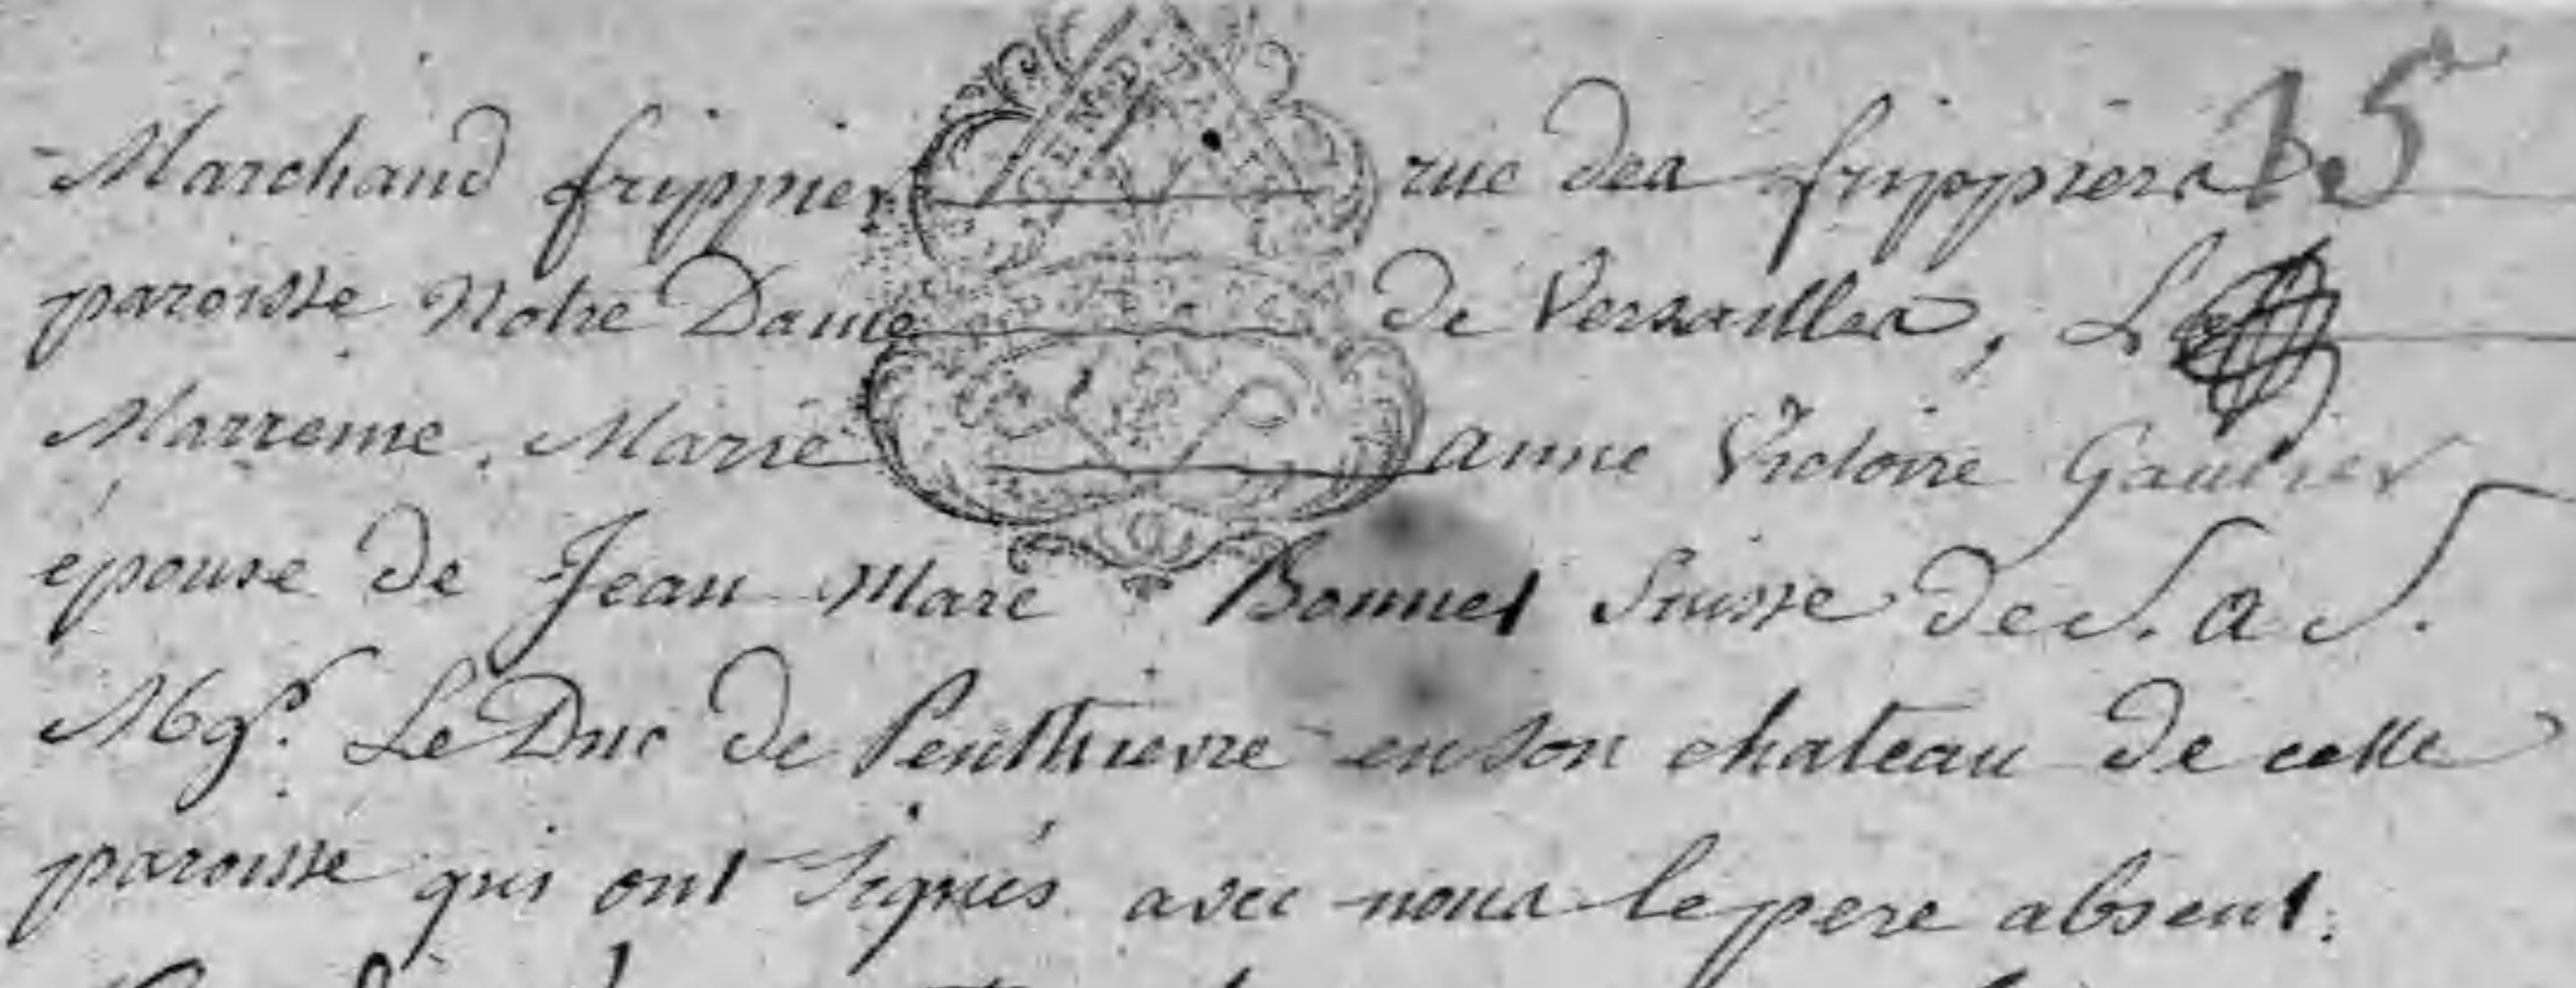 15
Marchand frippier rue des frippiers
paroisse Notre Dame de Versailles, La
Marreine, Marie anne Victoire Gautier
épouse de Jean Marc Bonnet Suisse de S. a S.
Mgr. Le Duc de Penthievre en son chateau de cette
paroisse qui ont signés avec nous le pere absent.